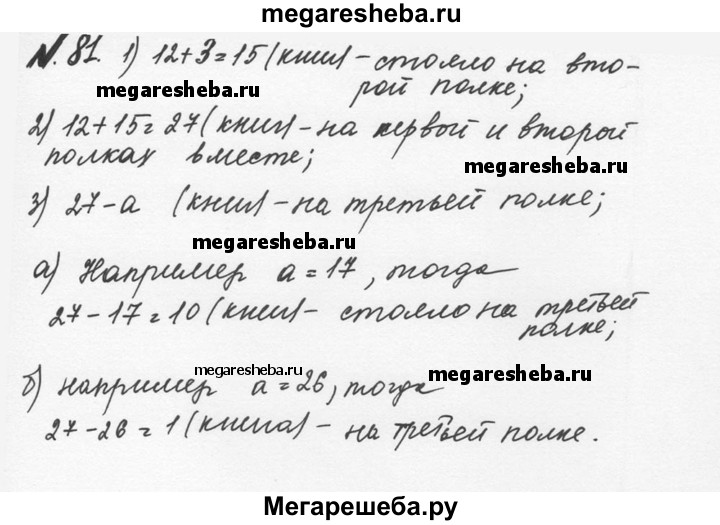 megaresheba.ru
№ 81. 1) 12+3=15 (книг) - стояло на вто-
рой полке;
megaresheba.ru
2) 12+15=27 (книг) - на первой и второй
полках вместе;
megaresheba.ru
3) 27-а (книг) - на третьей полке;
megaresheba.ru
а) Например а=17, тогда
27-17=10 (книг) - стояло на третьей
полке;
megaresheba.ru
megaresheba.ru
б) например а=26, тогда
27-26=1 (книга) - на третьей полке.
Мегарешеба.ру